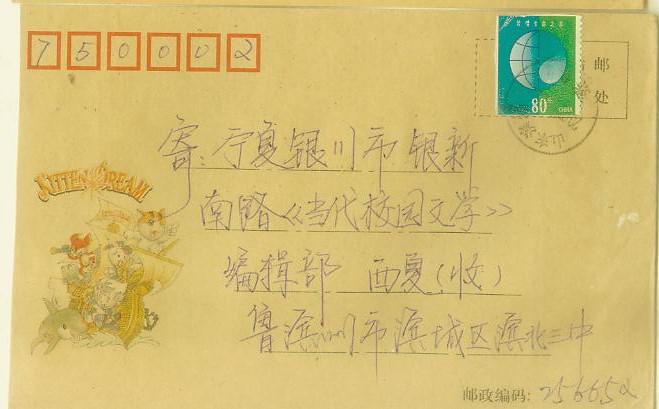 750002
贴 邮
处
80分
CHINA
寄:宁夏银川市银新
南路《当代校园文学》
编辑部 西夏(收)
鲁滨州市滨城区滨北三中
邮政编码: 256652